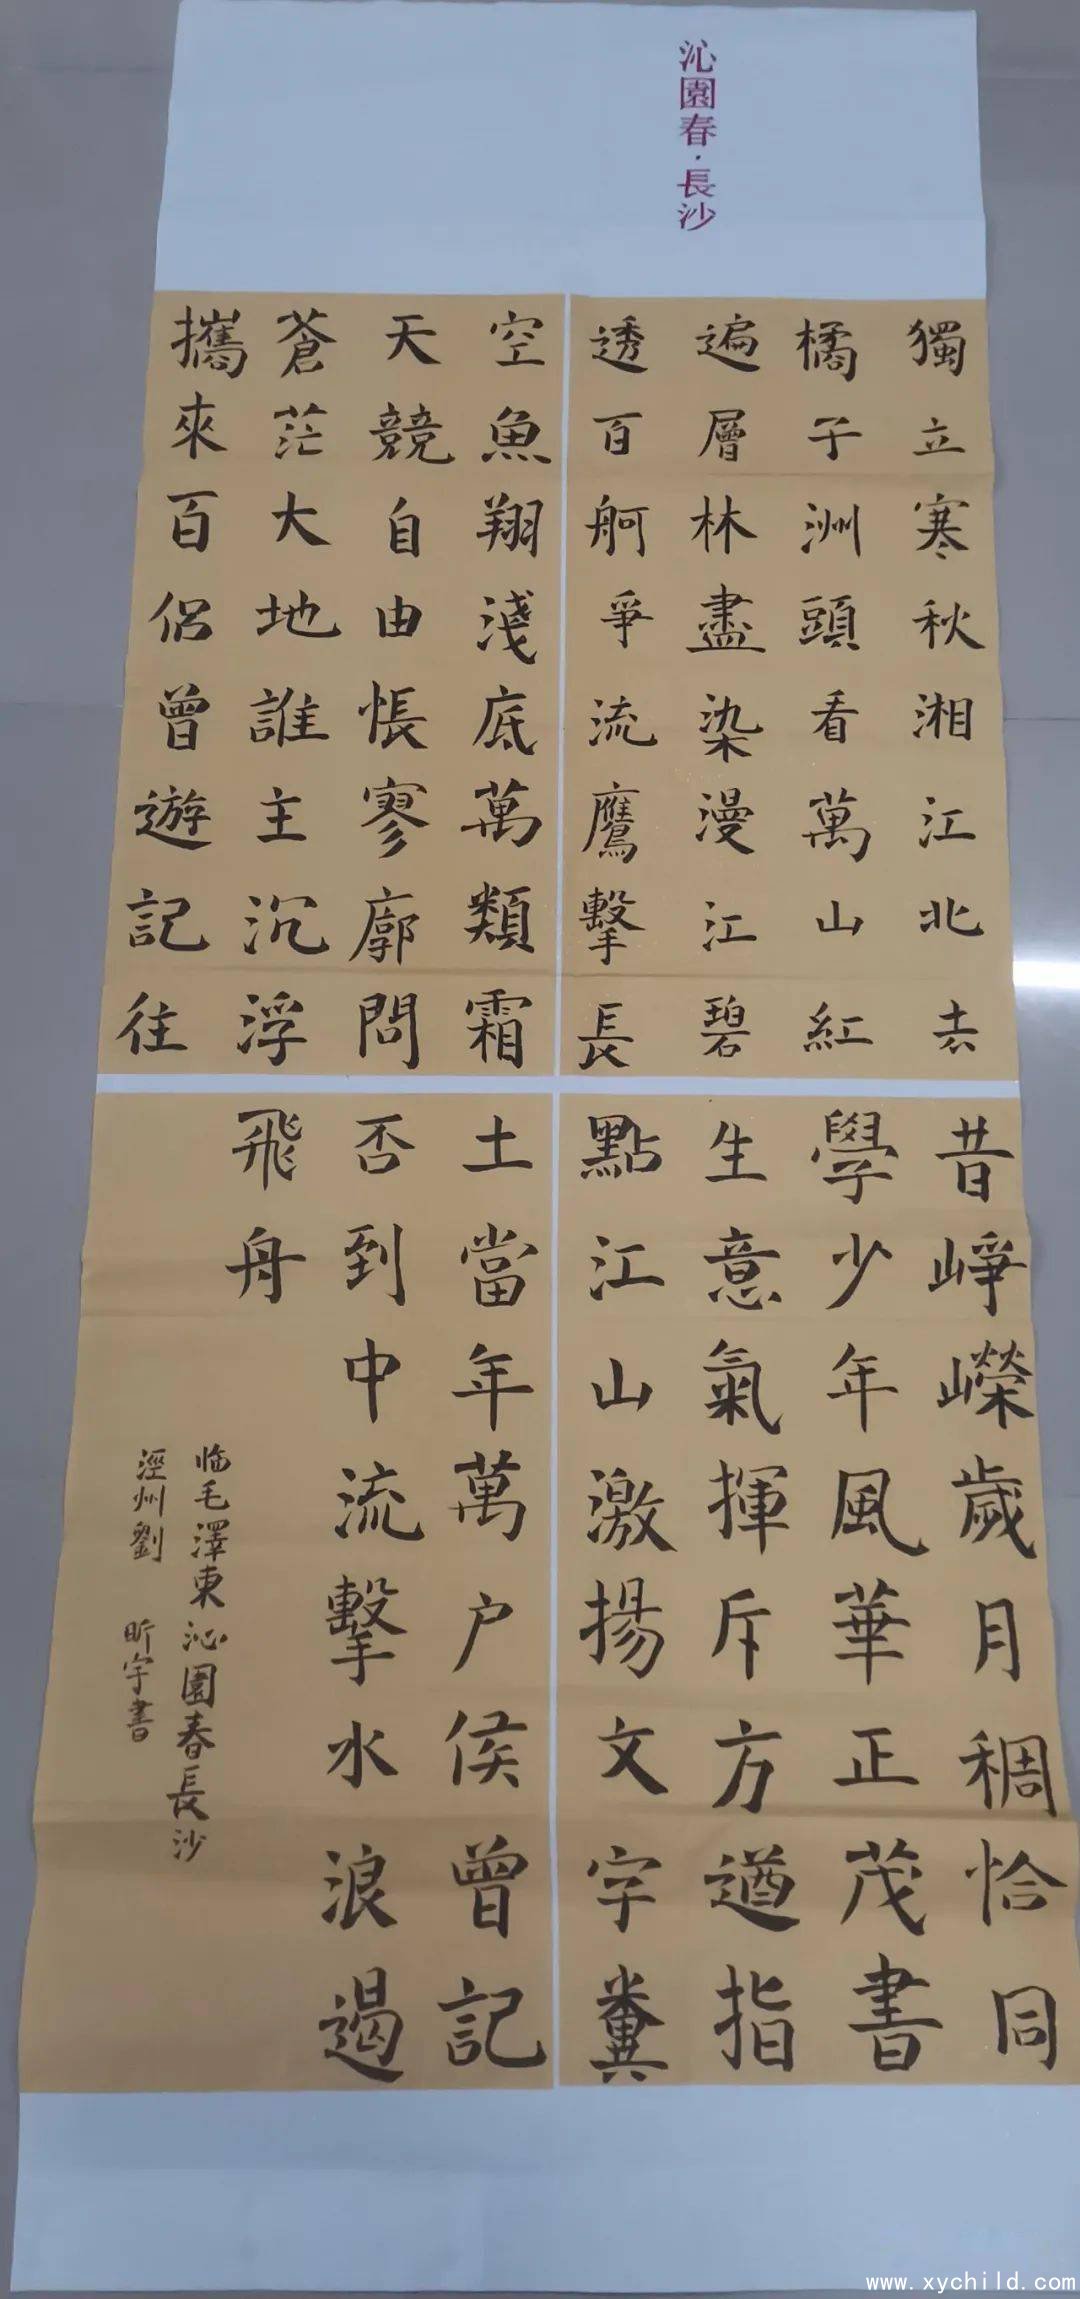 沁園春·長沙
獨立寒秋湘江北去
橘子洲頭看萬山紅
遍層林盡染漫江碧
透百舸爭流鷹擊長
空魚翔淺底萬類霜
天競自由悵寥廓問
蒼茫大地誰主沉浮
攜來百侶曾遊記往
昔崢嶸歲月稠恰同
學少年風華正茂書
生意氣揮斥方遒指
點江山激揚文字糞
土當年萬户侯曾記
否到中流擊水浪遏
飛舟
临毛澤東沁園春長沙
涇州劉 昕宇書
www.xychild.com